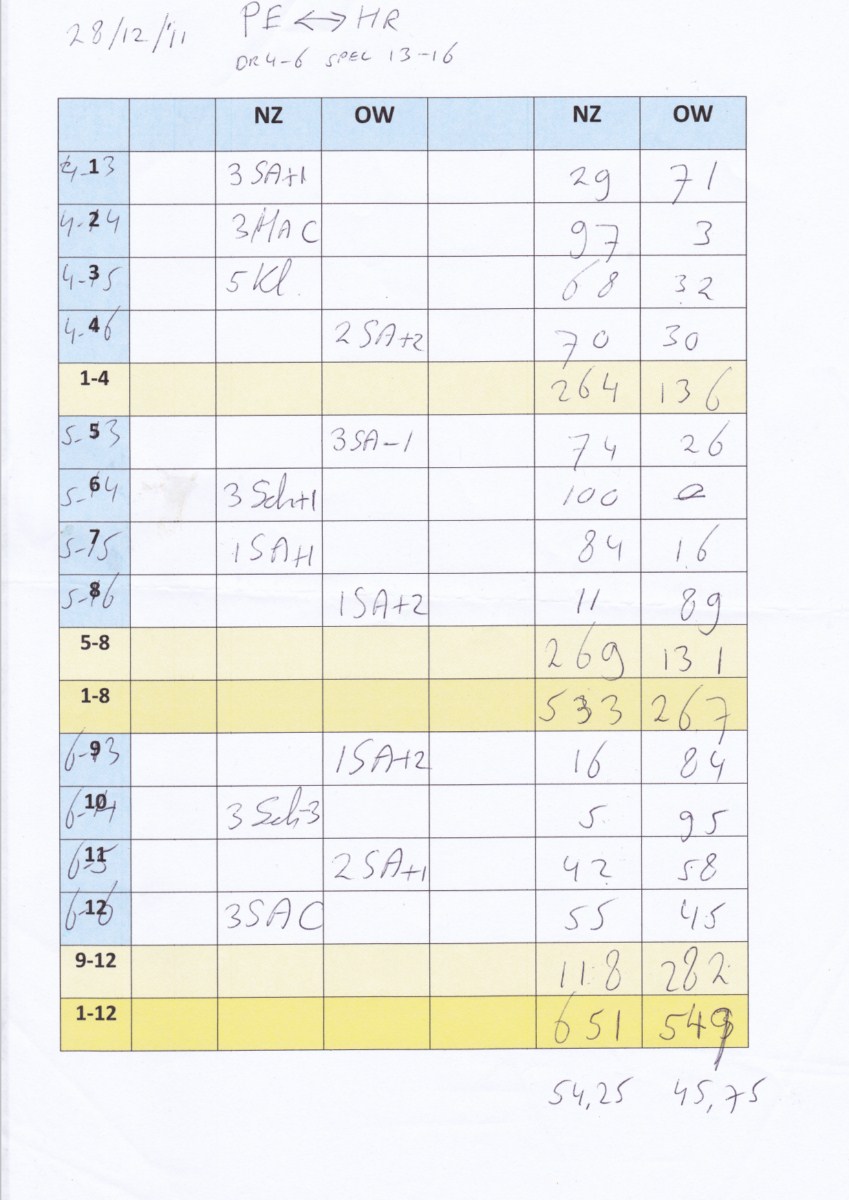 28/12/'11 PE <-> HR
DR 4-6 SPEL 13-16
NZ OW NZ OW
4-13 1 3SA+1 29 71
4-14 2 3HA C 97 3
4-15 3 5Kl. 68 32
4-16 4 2SA+2 70 30
1-4 264 136
5-13 5 3SA-1 74 26
5-14 6 3Sch+1 100 0
5-15 7 1SA+1 84 16
5-16 8 1SA+2 11 89
5-8 269 131
1-8 533 267
6-13 9 1SA+2 16 84
6-14 10 3Sch-3 5 95
6-15 11 2SA+1 42 58
6-16 12 3SAC 55 45
9-12 118 282
1-12 651 549
54,25 45,75